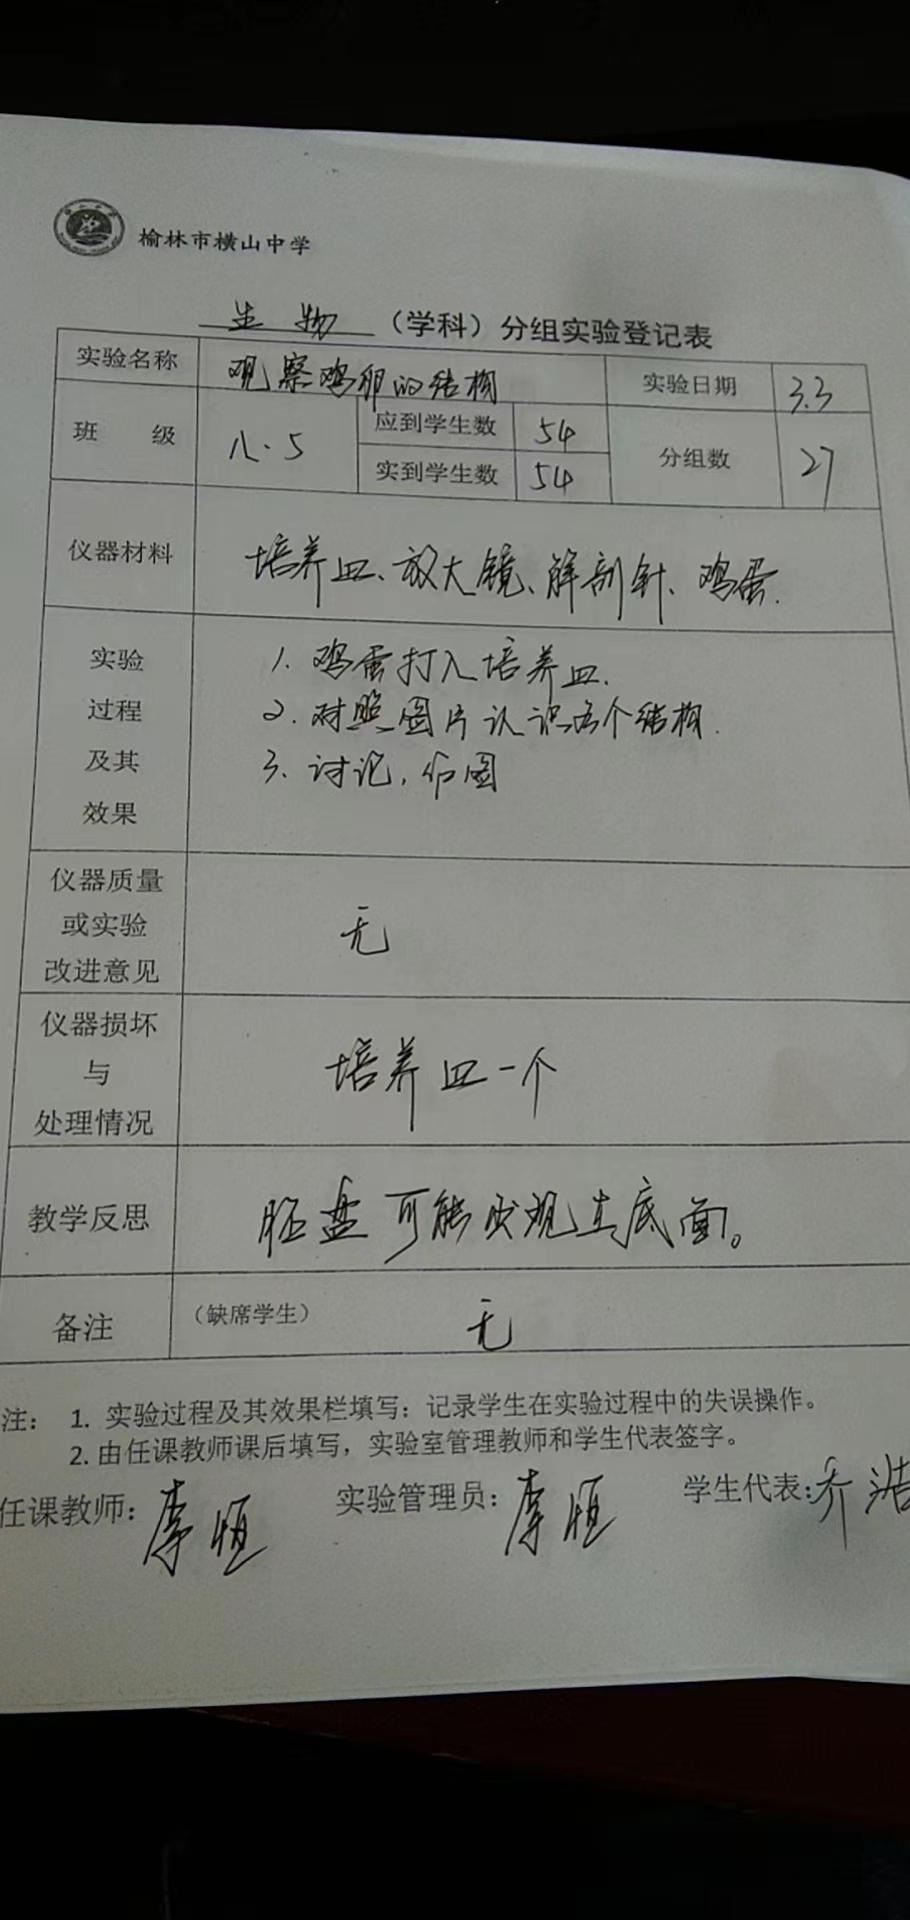 榆林市横山中学
生物（学科）分组实验登记表
实验名称 观察鸡卵的结构 实验日期 3.3
班级 八.5 应到学生数 54 分组数 27
实到学生数 54
仪器材料 培养皿、放大镜、解剖针、鸡蛋.
实验
过程
及其
效果
1. 鸡蛋打入培养皿.
2. 对照图片认识各个结构.
3. 讨论,作图
仪器质量
或实验
改进意见
无
仪器损坏
与
处理情况
培养皿一个
教学反思 胚盘可能出现在底面。
备注 （缺席学生） 无
注： 1. 实验过程及其效果栏填写：记录学生在实验过程中的失误操作。
2. 由任课教师课后填写，实验室管理教师和学生代表签字。
任课教师: 李恒 实验管理员: 李恒 学生代表: 乔浩